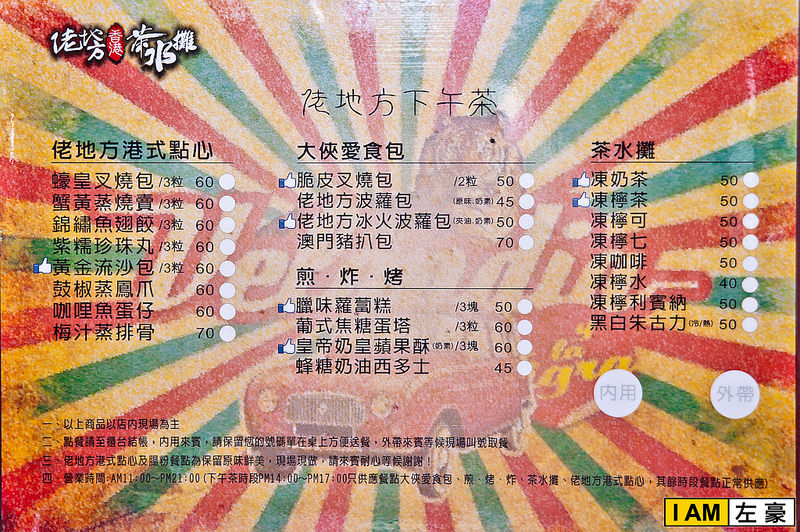 佬地方香港茶水攤
佬地方下午茶
佬地方港式點心
蠔皇叉燒包/3粒 60
蟹黃蒸燒賣/3粒 60
錦繡魚翅餃/3粒 60
紫糯珍珠丸/3粒 60
黃金流沙包/3粒 60
鼓椒蒸鳳爪 60
咖哩魚蛋仔 60
梅汁蒸排骨 70
大俠愛食包
脆皮叉燒包 /2粒 50
佬地方波蘿包(原味.奶素) 45
佬地方冰火波蘿包(夾油.奶素) 50
澳門豬扒包 70
煎．炸．烤
臘味蘿蔔糕 /3塊 50
葡式焦糖蛋塔 /3粒 60
皇帝奶皇蘋果酥(奶素)/3塊 60
蜂糖奶油西多士 45
茶水攤
凍奶茶 50
凍檸茶 50
凍檸可 50
凍檸七 50
凍咖啡 50
凍檸水 40
凍檸利賓納 50
黑白朱古力(冷/熱) 50
內用
外帶
一、以上商品以店內現場為主
二、點餐請至櫃台結帳，內用來賓，請保留您的號碼單在桌上方便送餐，外帶來賓等候現場叫號取餐
三、佬地方港式點心及腸粉餐點為保留原味鮮美，現場現做，請來賓耐心等候謝謝！
四、營業時間:AM11:00~PM21:00(下午茶時段PM14:00~PM17:00只供應餐點大俠愛食包、煎．烤．炸、茶水攤、佬地方港式點心，其餘時段餐點正常供應)
I AM 左豪